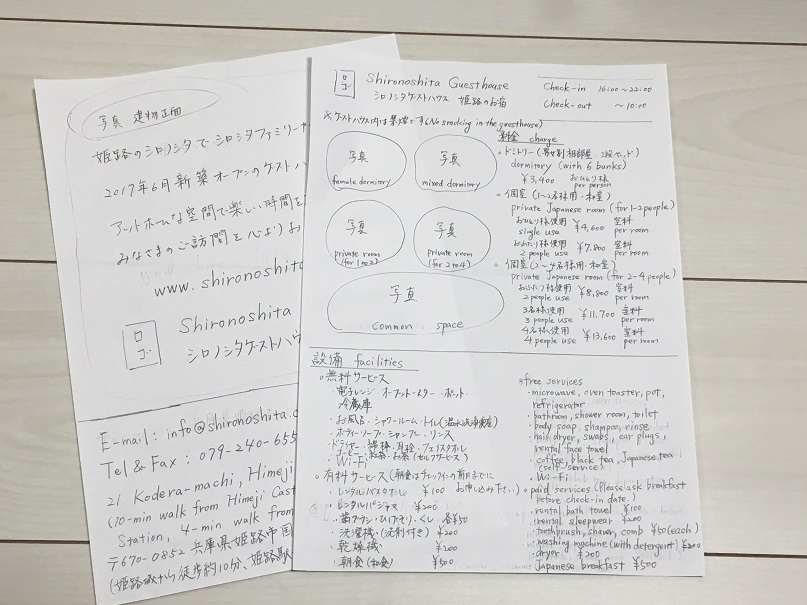 写真 建物正面
姫路のシロノシタで シロシタファミリーサ
2017年6月 新築オープンのゲストハ
アットホームな空間で楽しい時間を
みなさまのご訪問を心よりお
www.shironoshita
ロゴ
Shironoshita
シロノシタゲストハウ
E-mail: info@shironoshita.c
Tel & Fax : 079-240-655
21 Kodera-machi, Himeji
(10-min walk from Himeji Cast
Station, 4-min walk from
〒670-0852 兵庫県姫路市
(姫路城から徒歩約10分、姫路駅
ロゴ
Shironoshita Guesthouse
シロノシタゲストハウス 姫路のお宿
Check-in 16:00~22:00
Check-out ~10:00
※ゲストハウス内は禁煙です(No smoking in the guesthouse)
写真
female dormitory
写真
mixed dormitory
写真
private room
(for 1 to 2)
写真
private room
(for 2 to 4)
写真
common space
料金 charge
○ドミトリー(男女別相部屋・2段ベッド)
dormitory (with 6 bunks)
¥3,400 おひとり様 per person
○個室(1~2名様用・和室)
private Japanese room (for 1-2 people)
おひとり様使用 single use ¥4,600 室料 per room
おふたり様使用 2 people use ¥7,800 室料 per room
○個室(2~4名様用・和室)
private Japanese room (for 2-4 people)
おふたり様使用 2 people use ¥8,800 室料 per room
3名様使用 3 people use ¥11,700 室料 per room
4名様使用 4 people use ¥13,600 室料 per room
設備 facilities
○無料サービス
・電子レンジ・オーブントースター・ポット・
冷蔵庫
・お風呂・シャワールーム・トイレ(温水洗浄便座)
・ボディーソープ・シャンプー・リンス
・ドライヤー・綿棒・耳栓・フェイスタオル
・コーヒー・紅茶・お茶(セルフサービス)
・Wi-Fi
○有料サービス(朝食はチェックインの前日までに
お申し込み下さい)
・レンタルバスタオル ¥100
・レンタルパジャマ ¥200
・歯ブラシ・ひげそり・くし 各¥50
・洗濯機(洗剤付き) ¥200
・乾燥機 ¥200
・朝食(和食) ¥500
○free services
・microwave, oven toaster, pot,
refrigerator
・bathroom, shower room, toilet
・body soap, shampoo, rinse
・hair dryer, swabs, ear plugs,
rental face towel
・coffee, black tea, Japanese tea
(self-service)
・Wi-Fi
○paid services (Please ask breakfast
before check-in date.)
・rental bath towel ¥100
・rental sleepwear ¥200
・toothbrush, shaver, comb ¥50(each)
・washing machine (with detergent) ¥200
・dryer ¥200
・Japanese breakfast ¥500